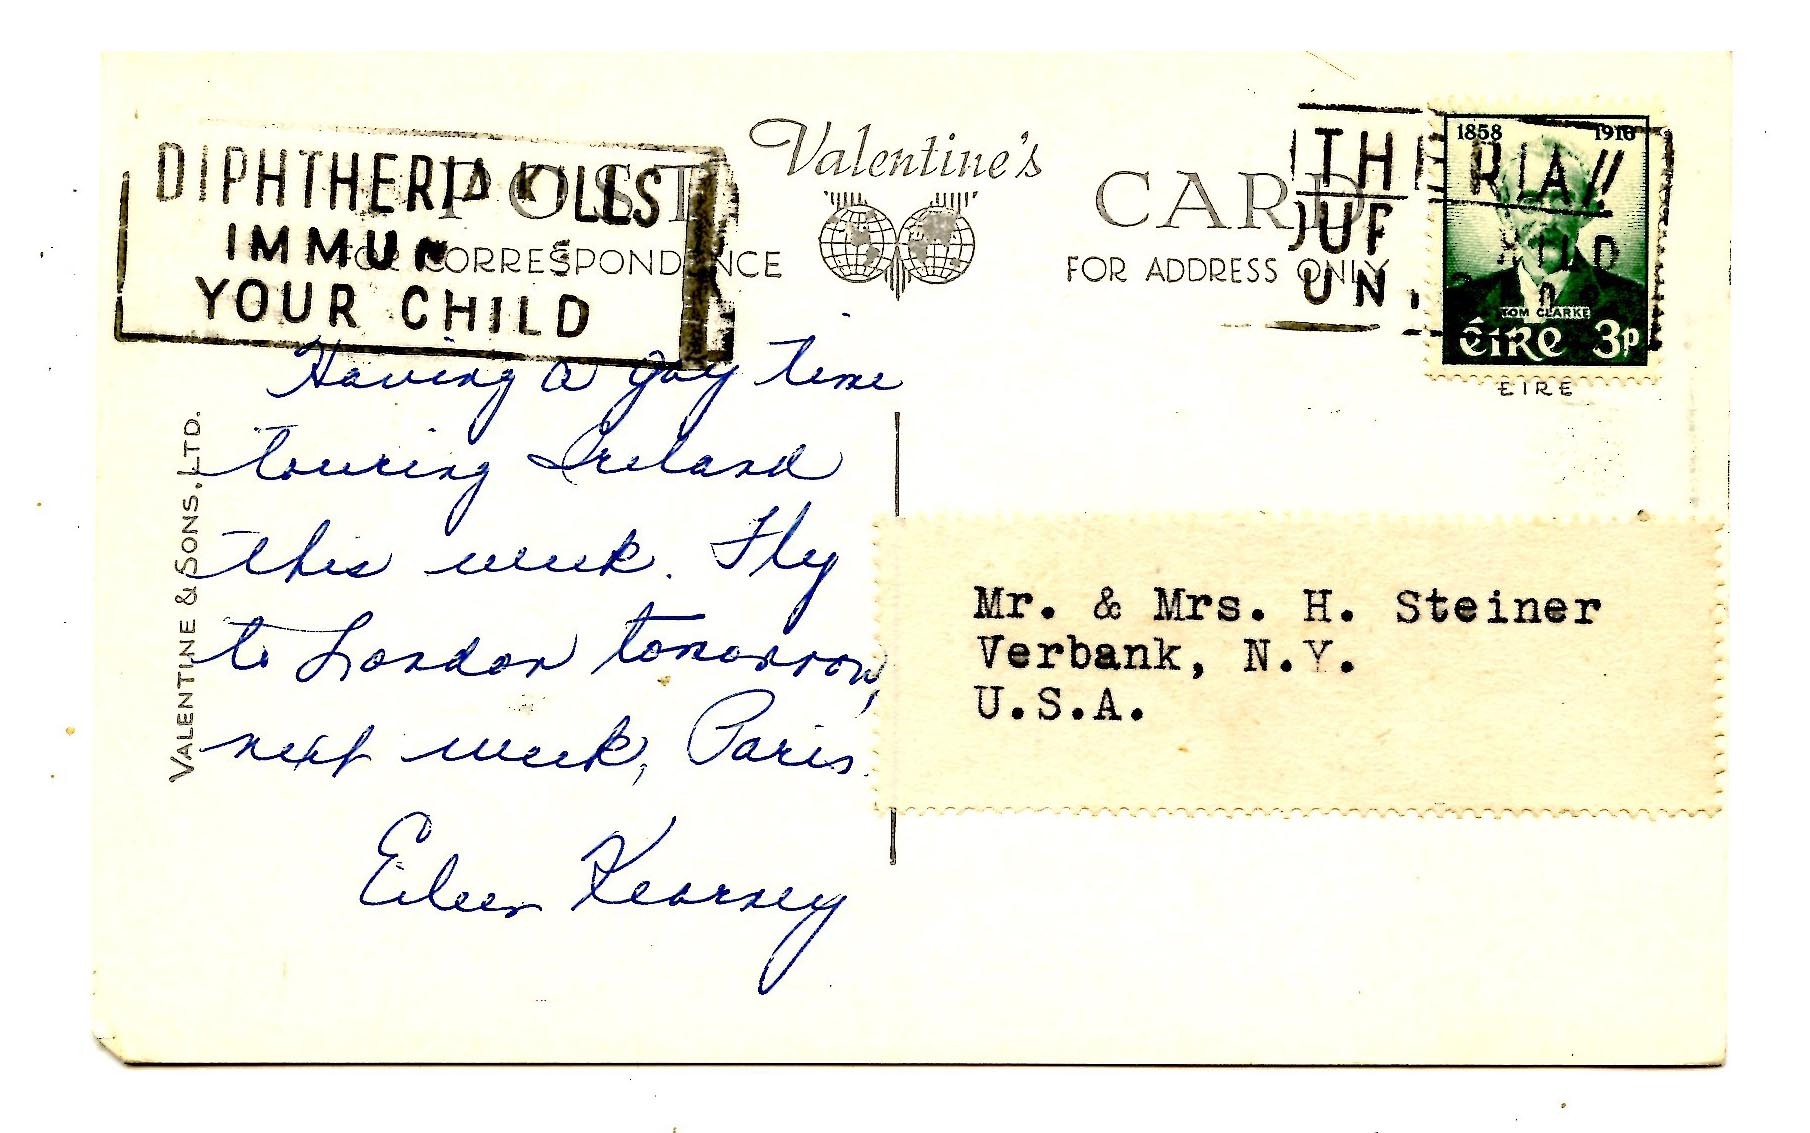 DIPHTHERIA KILLS
IMMUN
YOUR CHILD
POST CARD
Valentine's
FOR CORRESPONDENCE
FOR ADDRESS ONLY
THERIA
UN
1858 1916
TOM CLARKE
éire 3p
EIRE
VALENTINE & SONS, LTD.
Having a gay time
touring Ireland
this week. Fly
to London tomorrow,
next week, Paris.
Eileen Kearney
Mr. & Mrs. H. Steiner
Verbank, N.Y.
U.S.A.